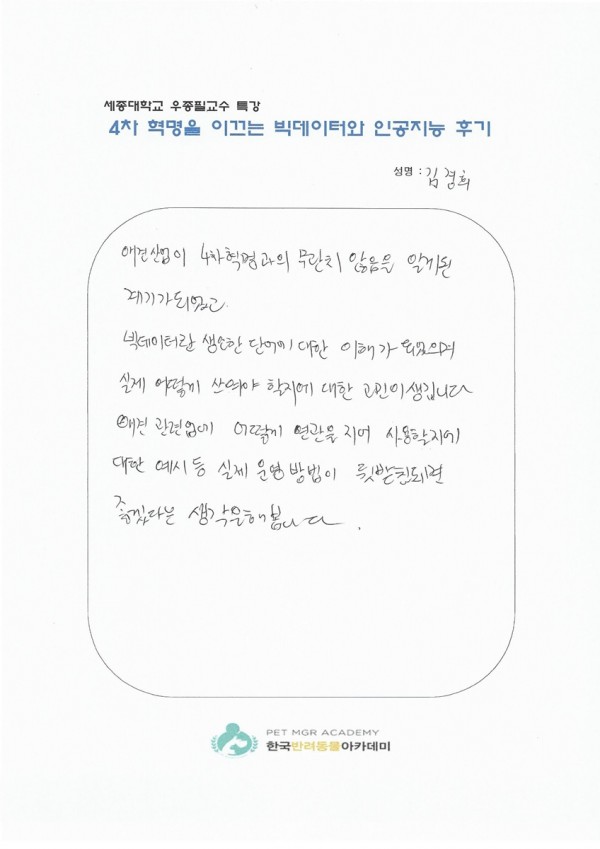 세종대학교 우종필교수 특강
4차 혁명을 이끄는 빅데이터와 인공지능 후기
성명 : 김경희
애견산업이 4차혁명과의 무관치 않음을 알게된
계기가되었고
빅데이터란 생소한 단어에 대한 이해가 되었으며
실제 어떻게 쓰여야 할지에 대한 고민이생깁니다
애견 관련업에 어떻게 연관을지어 사용할지에
대한 예시등 실제 운영방법이 뒷받침되면
좋겠다는 생각을해봅니다.
PET MGR ACADEMY
한국반려동물아카데미